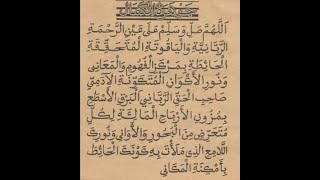 جوهرة الكمال
اَللَّهُمَّ صَلِّ وَسَلِّمْ عَلَى عَيْنِ الرَّحْمَةِ
الرَّبَّانِيَّةِ وَالْيَاقُوتَةِ الْمُتَحَقِّقَةِ
الْحَائِطَةِ بِمَرْكَزِ الْفُهُومِ وَالْمَعَانِي
وَنُورِ الْأَكْوَانِ الْمُتَكَوِّنَةِ الْآدَمِيِّ
صَاحِبِ الْحَقِّ الرَّبَّانِي الْبَرْقِ الْأَسْطَعِ
بِمُزُونِ الْأَرْبَاحِ الْمَالِئَةِ لِكُلِّ
مُتَعَرِّضٍ مِنَ الْبُحُورِ وَالْأَوَانِي وَنُورِكَ
اللَّامِعِ الَّذِي مَلَأْتَ بِهِ كَوْنَكَ الْحَائِطِ
بِأَمْكِنَةِ الْمَكَانِي